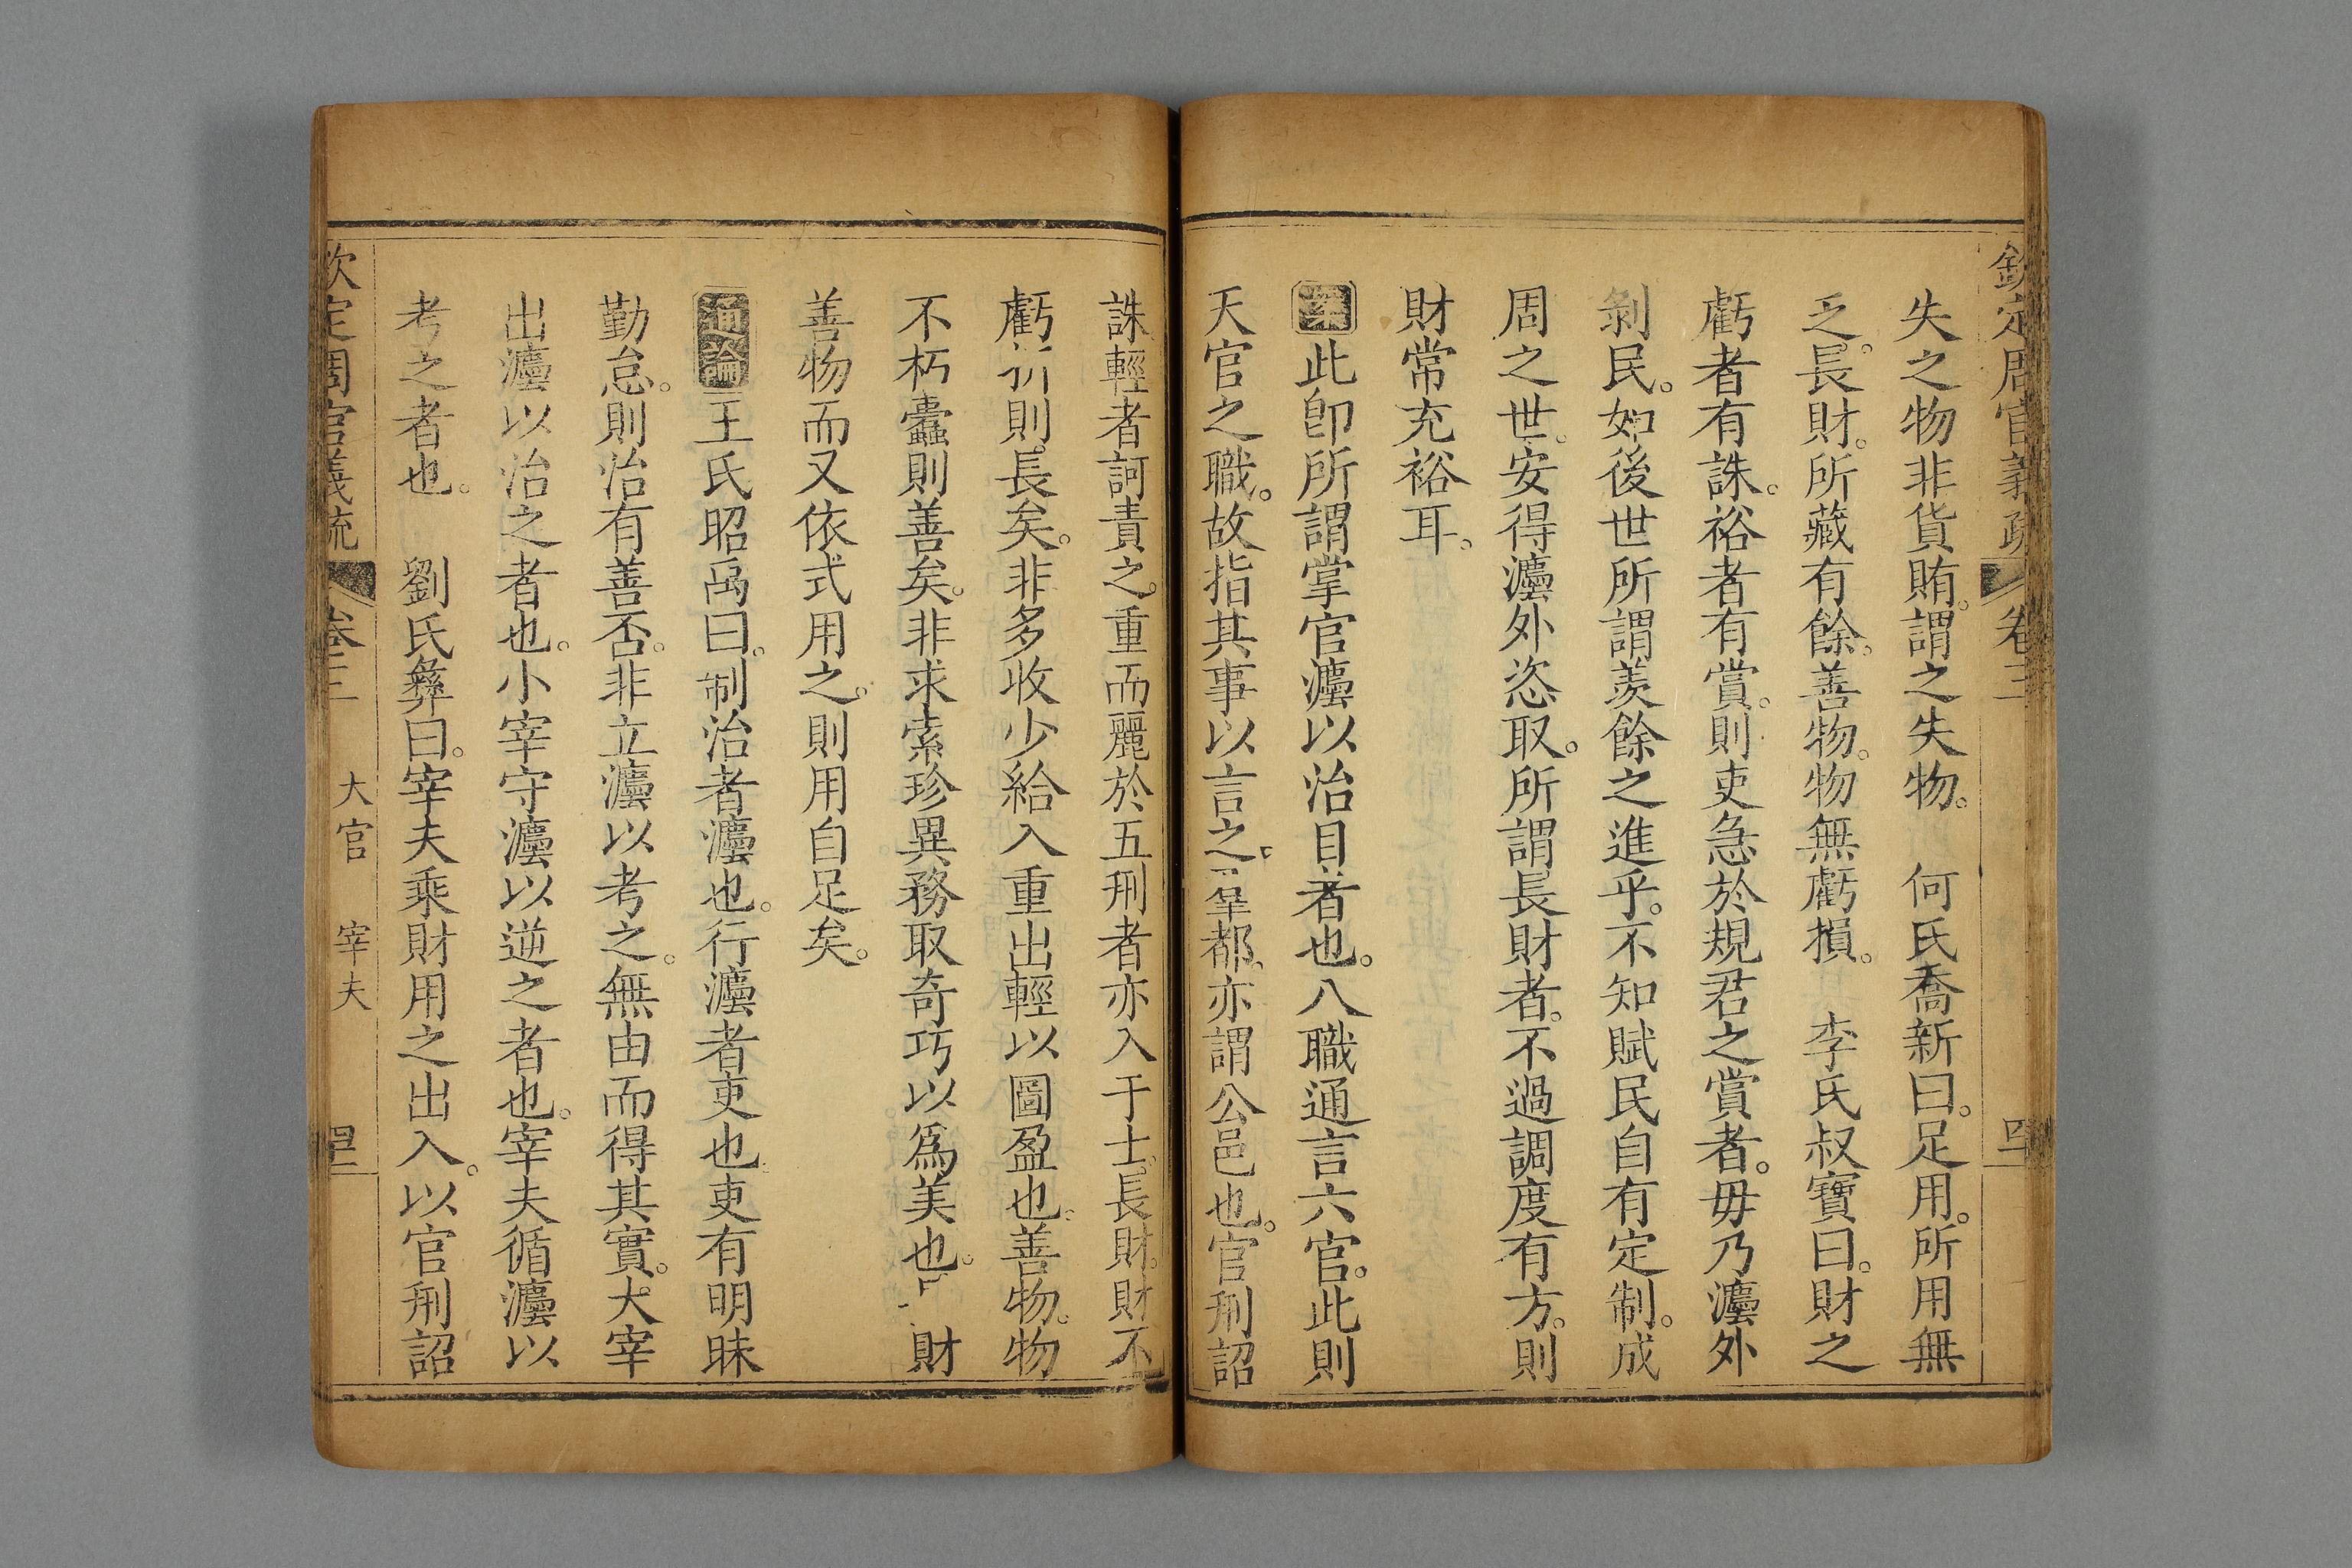 欽定周官義疏 卷三
失之物非貨賄。謂之失物。 何氏喬新曰。足用。所用無
乏。長財。所藏有餘。善物。物無虧損。 李氏叔寶曰。財之
虧者有誅。裕者有賞。則吏急於規君之賞者。毋乃灋外
剝民。如後世所謂羨餘之進乎。不知賦民自有定制。成
周之世。安得灋外恣取。所謂長財者。不過調度有方。則
財常充裕耳。
案此卽所謂掌官灋以治目者也。八職通言六官。此則
天官之職。故指其事以言之 羣都。亦謂公邑也。官刑詔
誅。輕者訶責之。重而麗於五刑者亦入于士。長財。財不
虧折則長矣。非多收少給入重出輕以圖盈也。善物。物
不朽蠹則善矣。非求索珍異務取奇巧以爲美也。 財
善物而又依式用之。則用自足矣。
通論 王氏昭禹曰。制治者灋也。行灋者吏也。吏有明昧
勤怠。則治有善否。非立灋以考之。無由而得其實。大宰
出灋以治之者也。小宰守灋以逆之者也。宰夫循灋以
考之者也。 劉氏彝曰。宰夫乘財用之出入。以官刑詔
欽定周官義疏 卷三 天官 宰夫